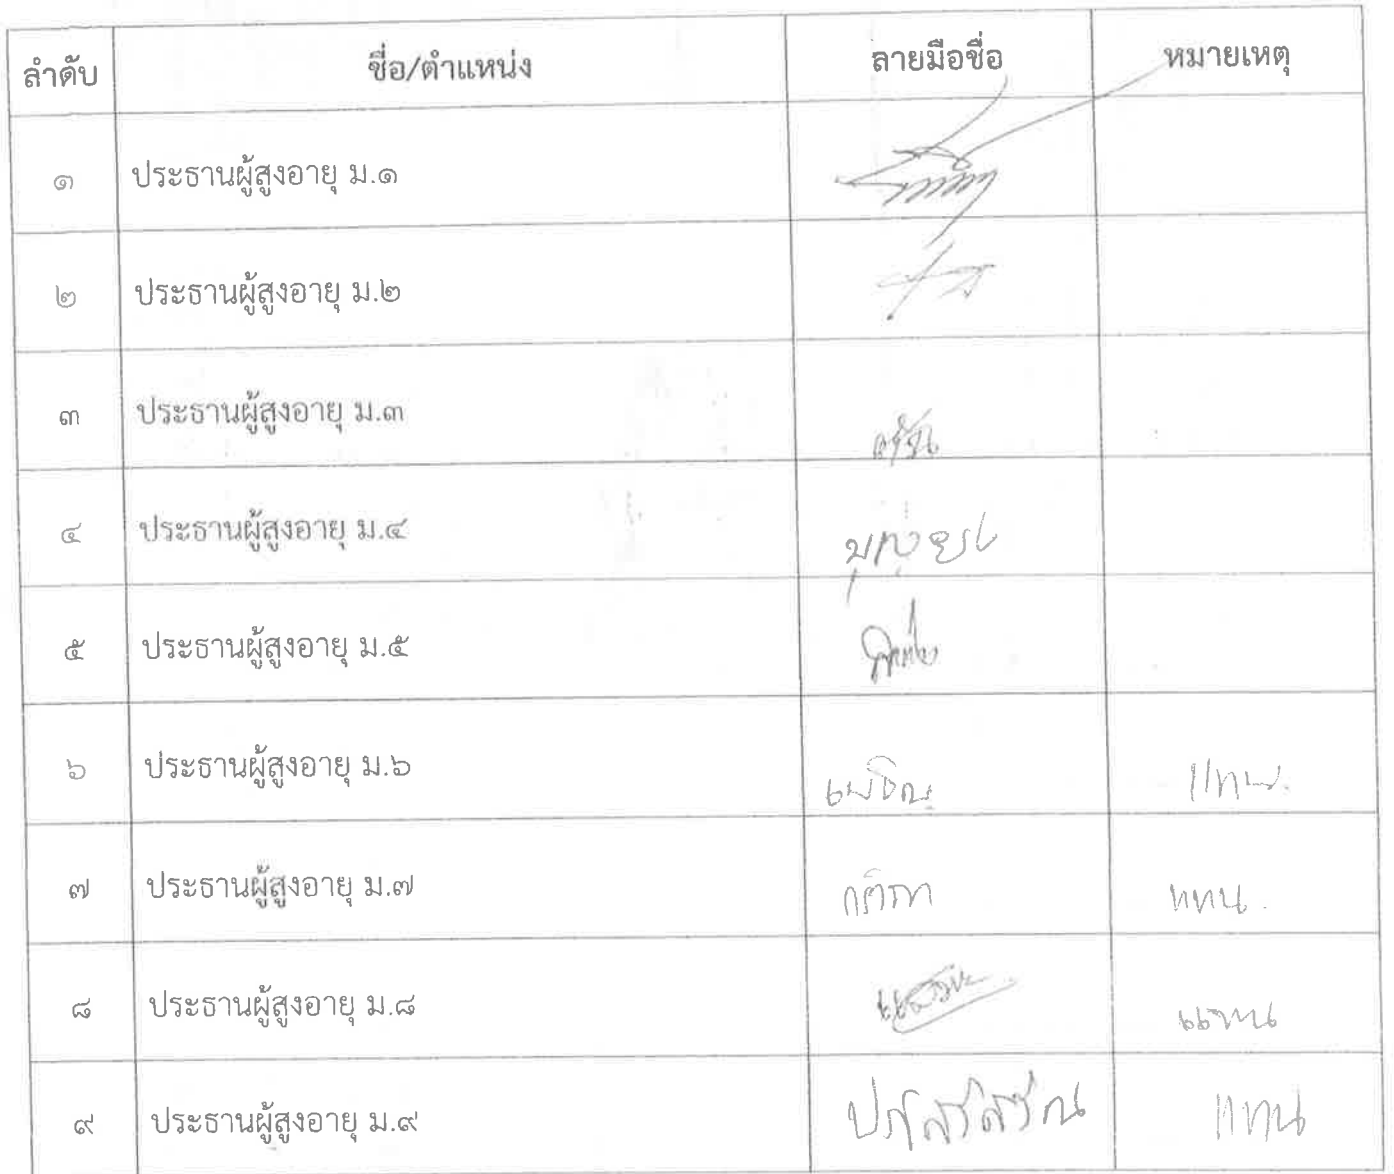 ลำดับ ชื่อ/ตำแหน่ง ลายมือชื่อ หมายเหตุ
๑ ประธานผู้สูงอายุ ม.๑
๒ ประธานผู้สูงอายุ ม.๒
๓ ประธานผู้สูงอายุ ม.๓
๔ ประธานผู้สูงอายุ ม.๔
๕ ประธานผู้สูงอายุ ม.๕
๖ ประธานผู้สูงอายุ ม.๖ แทน.
๗ ประธานผู้สูงอายุ ม.๗ แทน.
๘ ประธานผู้สูงอายุ ม.๘ แทน
๙ ประธานผู้สูงอายุ ม.๙ แทน